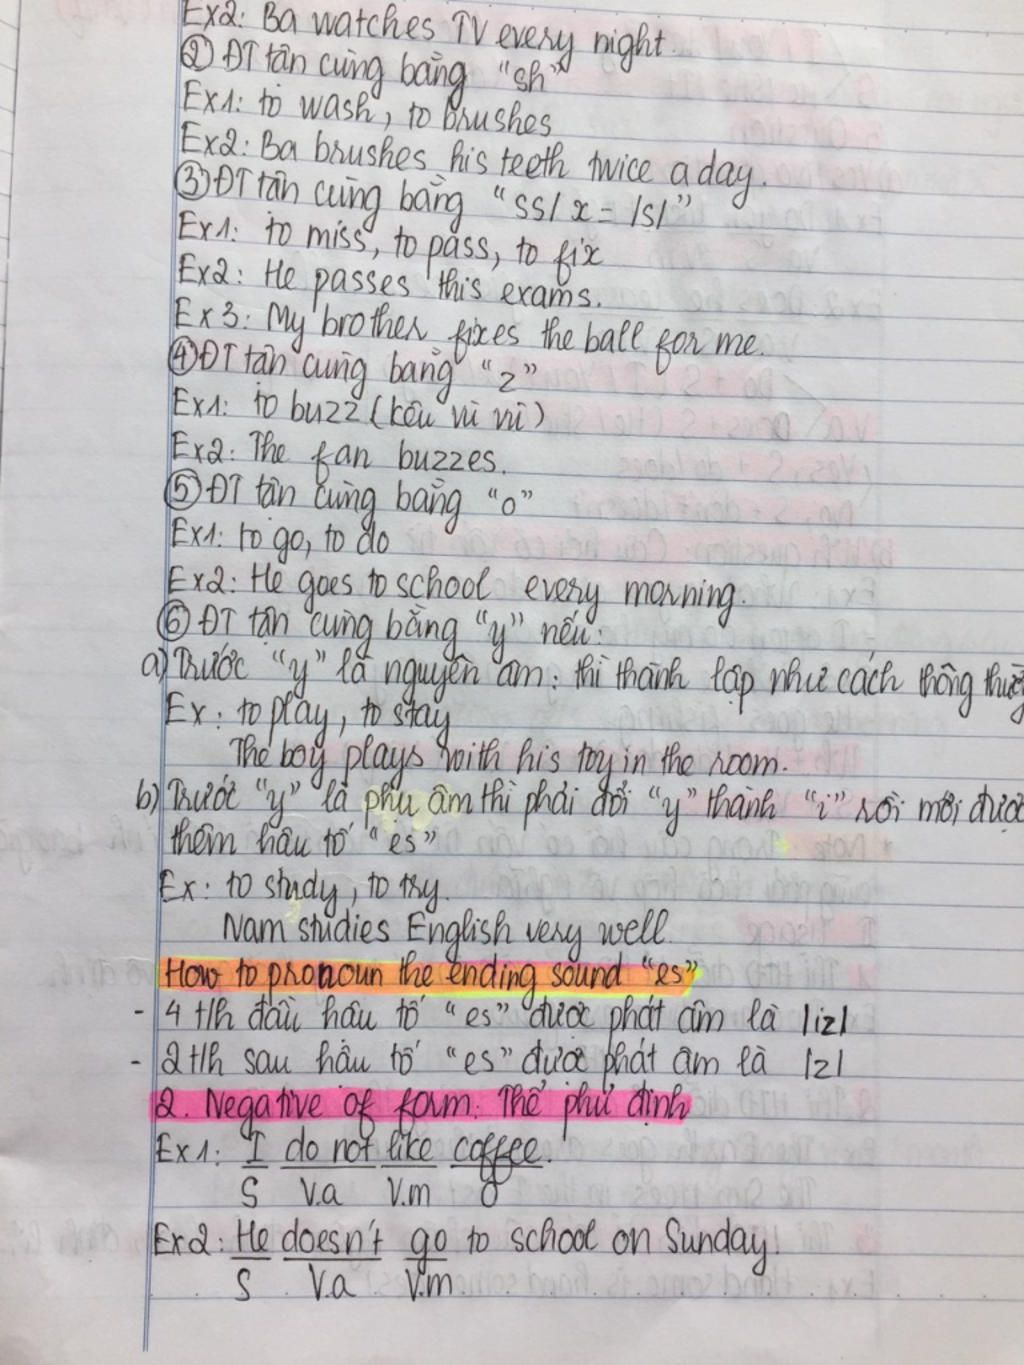 Ex2: Ba watches TV every night.
② ĐT tân cùng bằng "sh"
Ex1: to wash, to brushes
Ex2: Ba brushes his teeth twice a day.
③ ĐT tân cùng bằng "ss/ x = /s/"
Ex1: to miss, to pass, to fix
Ex2: He passes this exams.
Ex3: My brother fixes the ball for me.
④ ĐT tân cùng bằng "z"
Ex1: to buzz (kêu vù vù)
Ex2: The fan buzzes.
⑤ ĐT tân cùng bằng "o"
Ex1: to go, to do
Ex2: He goes to school every morning.
⑥ ĐT tân cùng bằng "y" nếu:
a) Trước "y" là nguyên âm: thì thành lập như cách thông thường
Ex: to play, to stay
The boy plays with his toy in the room.
b) Trước "y" là phụ âm thì phải đổi "y" thành "i" rồi mới được
thêm hậu tố "es"
Ex: to study, to try.
Nam studies English very well.
How to pronoun the ending sound "es"
- 4 t/h đầu hậu tố "es" được phát âm là /iz/
- 2 t/h sau hậu tố "es" được phát âm là /z/
2. Negative of form: Thể phủ định
Ex1: I do not like coffee.
S V.a V.m O
Ex2: He doesn't go to school on Sunday.
S V.a V.m